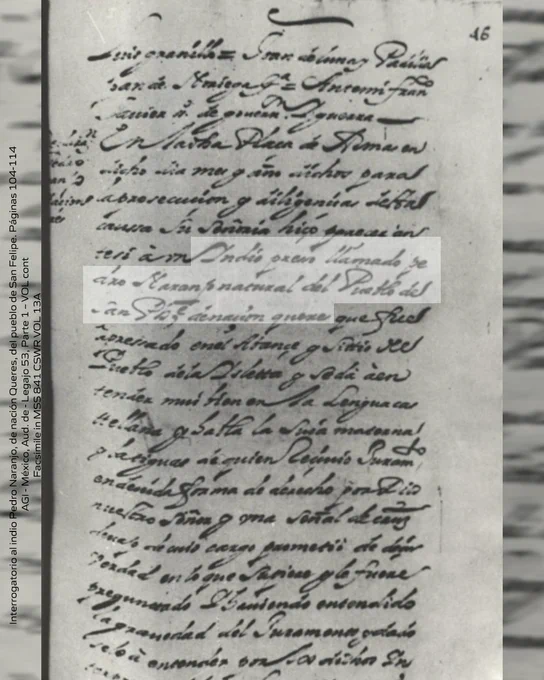 16
Luis granillo = Fran de Luna y Padilla
Juan de Noriega Gª = Antemi Fran
Xavier s. de gouern. y guerra
En la dha Plaza de Armas en
dicho dia mes y año dichos para
la prosecucion y diligencias desta
caussa Su Señoria hiço parecer an
tesi à vn Indio preso llamado pe
dro Naranjo natural del Pueblo de
San Phe de nacion queres que fue
apressado en el Alcançe y Sitio del
Pueblo dela Isletta y se dà à en
tender mui bien en la Lengua cas
tellana y habla la Suia materna
y de quien Reciuio Juram.to
en deuida forma de derecho por Dios
nuestro Señor y vna Señal de cruz
de cuio cargo prometio de dezir
verdad en lo que Supiere y le fuere
preguntado y hauiendo entendido
la grauedad del Juramento y dado
selo à entender por los dichos In
Interrogatorio al indio Pedro Naranjo, de nación Queres, del pueblo de San Felipe. Páginas 104-114
AGI - México, Aud. de - Legajo 53, Parte 1 - VOL cont
Facsimile in MSS 841 CSWR VOL 13A